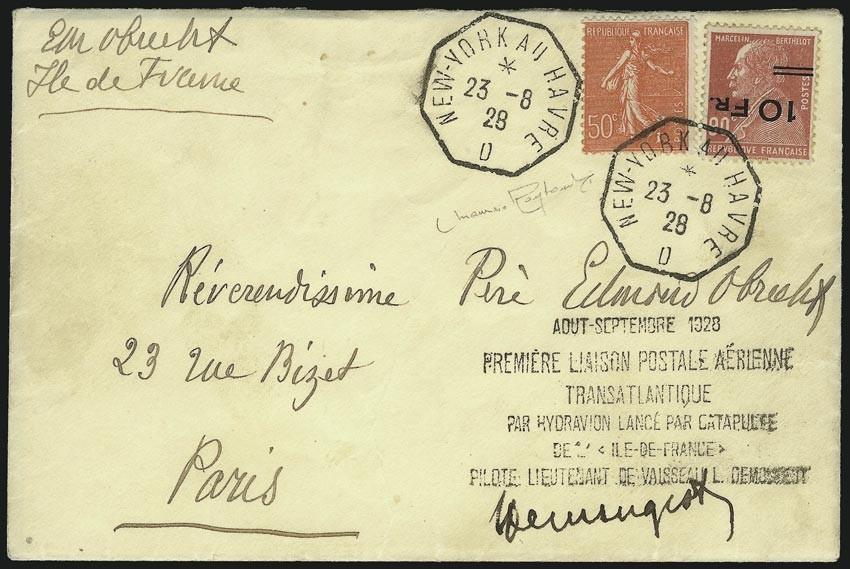 Em Obrecht
Ile de France
NEW-YORK AU HAVRE
*
23 -8
28
D
REPUBLIQUE FRANÇAISE
50c
MARCELIN BERTHELOT
POSTES
10 FR.
90c
REPUBLIQUE FRANÇAISE
NEW-YORK AU HAVRE
*
23 -8
28
D
Révérendissime Père Edmond Obrecht
23 rue Bizet
Paris
AOUT-SEPTEMBRE 1928
PREMIÈRE LIAISON POSTALE AÉRIENNE
TRANSATLANTIQUE
PAR HYDRAVION LANCÉ PAR CATAPULTE
DE L' < ILE-DE-FRANCE>
PILOTE: LIEUTENANT DE VAISSEAU L. DEMOUGEOT
Demougeot